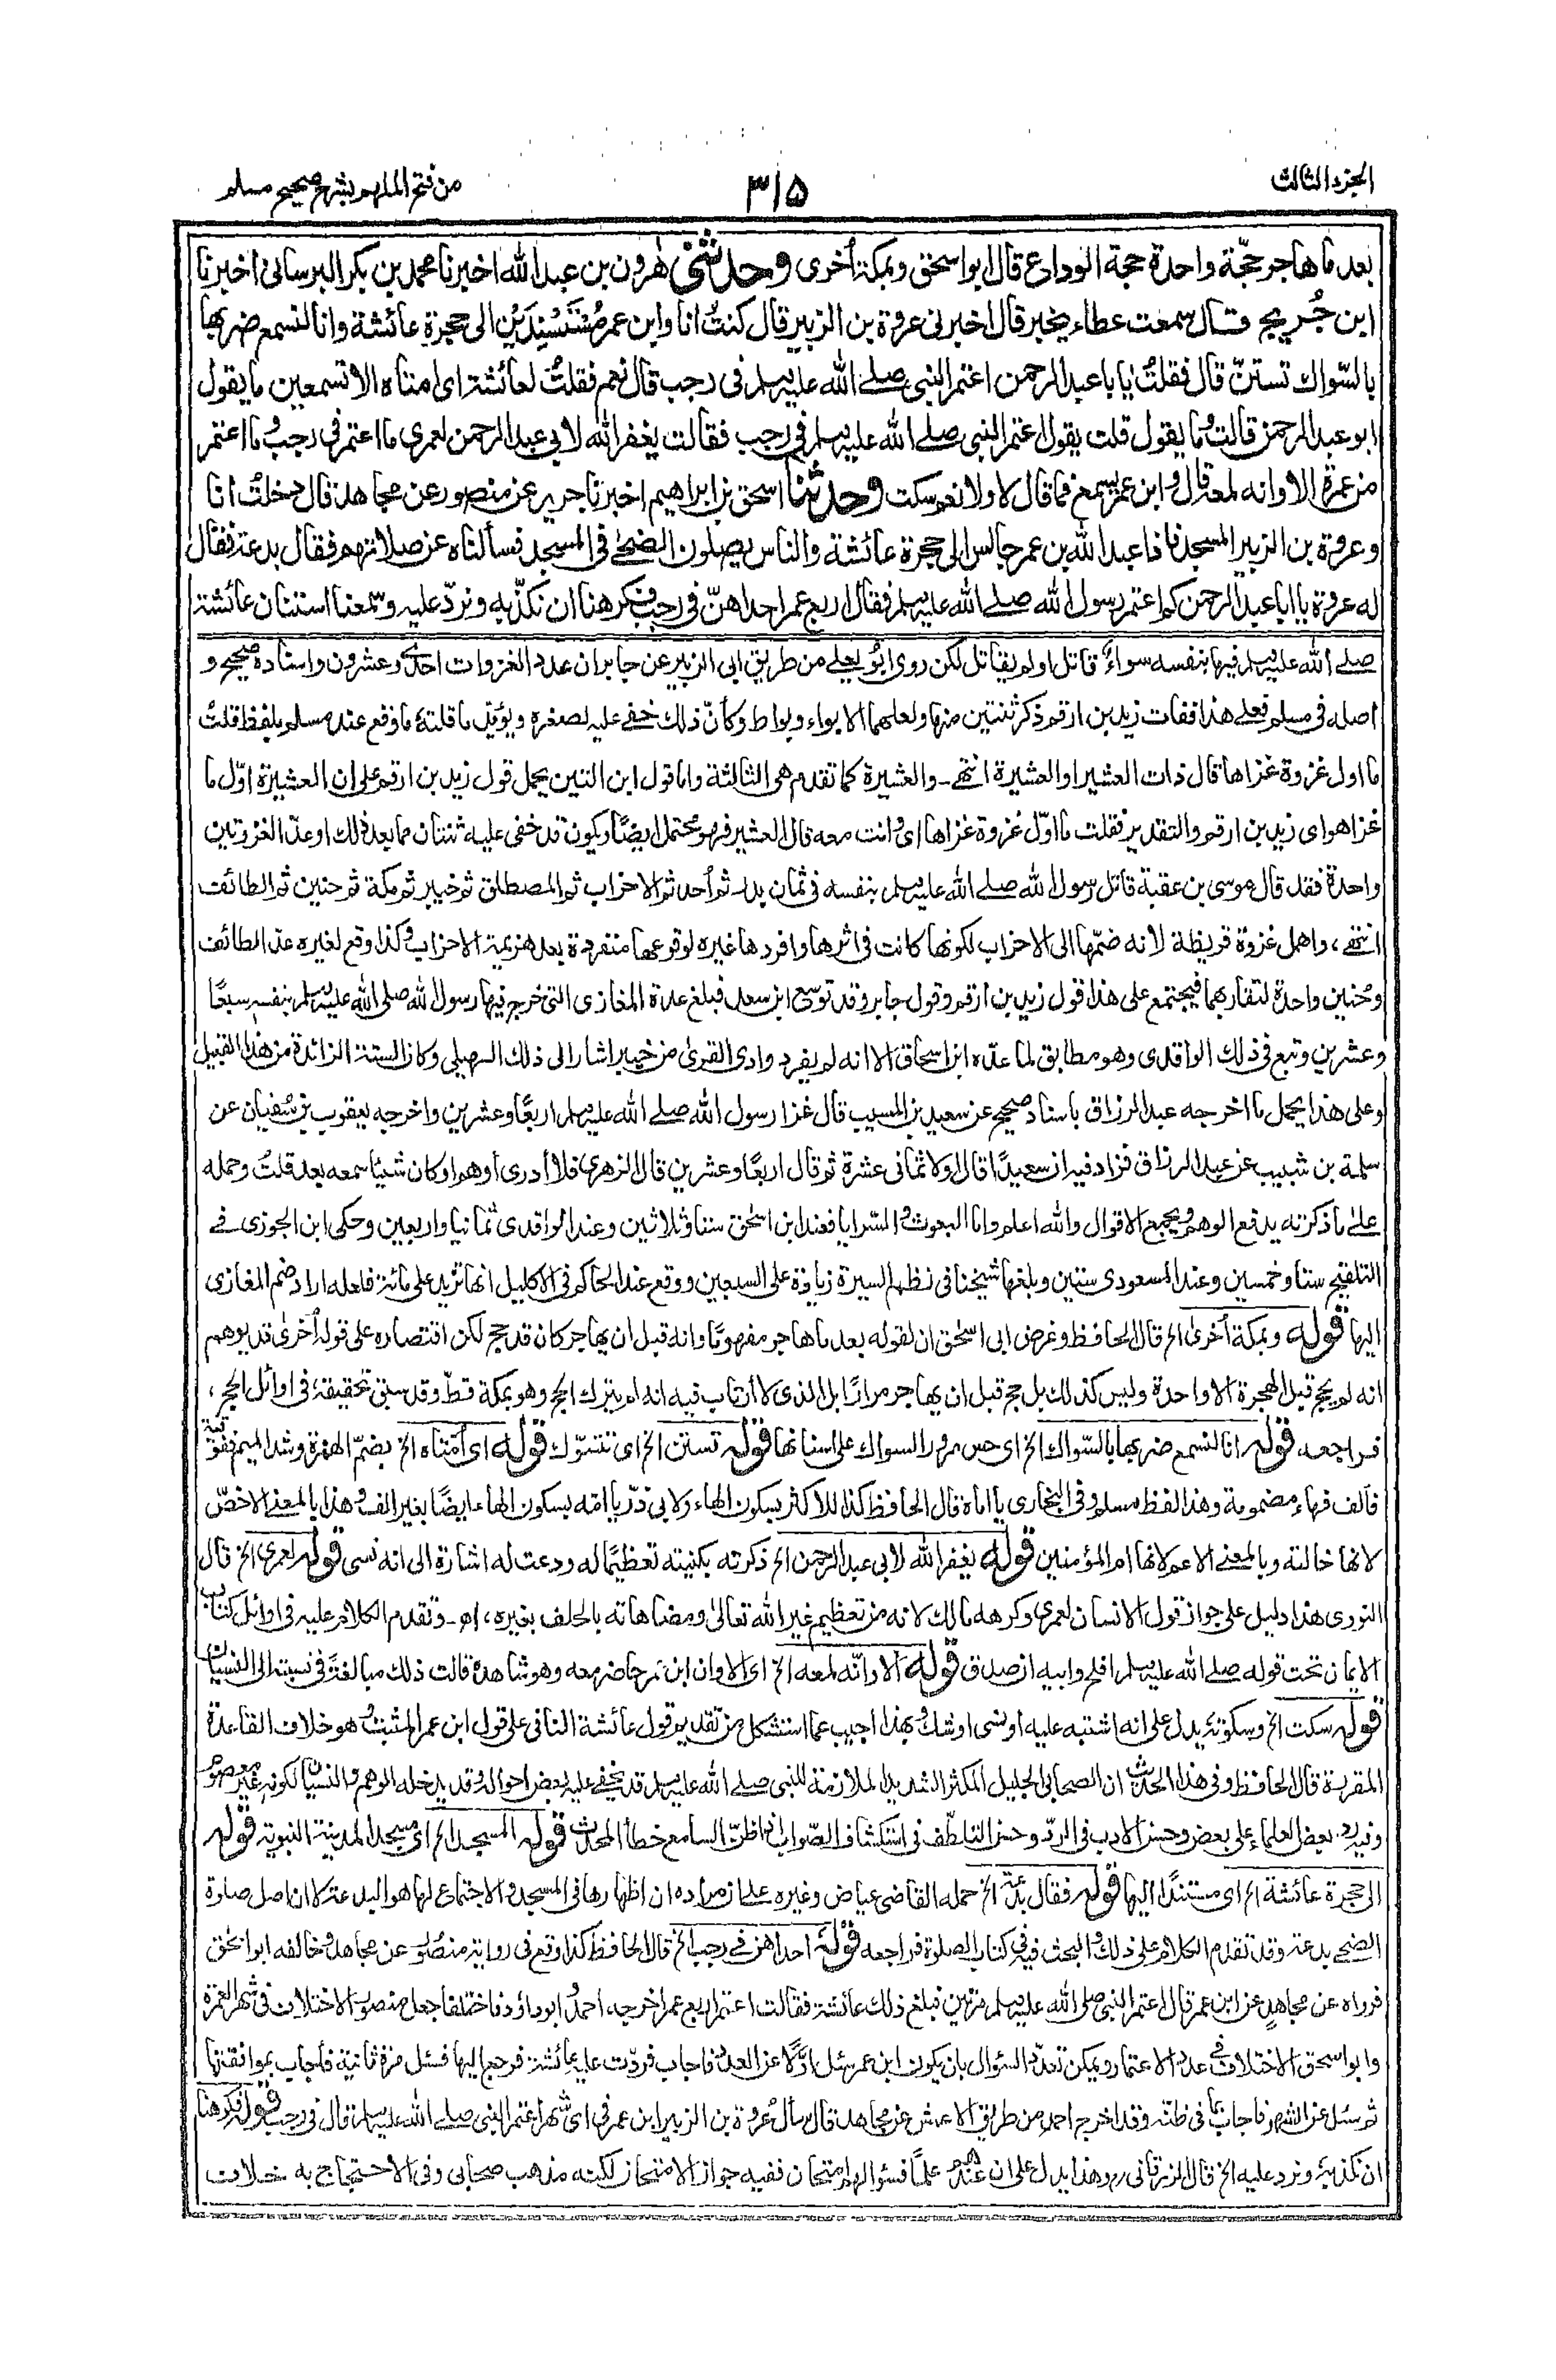 الجزء الثالث
٣١٥
من فتح الملهم بشرح صحيح مسلم
بعد ما هاجر حجّة واحدة حجة الوداع قال ابو اسحٰق وبمكة أخرى وحدثنى هٰرون بن عبد الله اخبرنا محمد بن بكر البرسانى اخبرنا
ابن جُريج قال سمعت عطاء يخبر قال اخبرنى عروة بن الزبير قال كنتُ انا وابن عمر مُسْتَنِدَيْنِ الى حجرة عائشة وانا لنسمع ضربها
بالسّواك تستنّ قال فقلتُ يا ابا عبد الرحمن اعتمر النبى صلى الله عليه وسلم فى رجب قال نعم فقلتُ لعائشة اى امتاه الا تسمعين ما يقول
ابو عبد الرحمن قالت وما يقول قلت يقول اعتمر النبى صلى الله عليه وسلم فى رجب فقالت يغفر الله لابى عبد الرحمن لعمرى ما اعتمر فى رجب وما اعتمر
من عمرة الا وانه لمعه قال وابن عمر يسمع فما قال لا ولا نعم سكت وحدثنا اسحق بن ابراهيم اخبرنا جرير عن منصور عن مجاهد قال دخلتُ انا
وعروة بن الزبير المسجد فاذا عبد الله بن عمر جالس الى حجرة عائشة والناس يصلون الضحٰى فى المسجد فسألناه عن صلاتهم فقال بدعة فقال
له عروة يا ابا عبد الرحمن كم اعتمر رسول الله صلى الله عليه وسلم فقال اربع عمر احداهنّ فى رجب فكرهنا ان نكذّبه ونردّ عليه وسمعنا استنان عائشة
صلى الله عليه وسلم فيها بنفسه سواء قاتل او لم يقاتل لكن روى ابو يعلى من طريق ابى الزبير عن جابر ان عدد الغزوات احدى وعشرون واسناده صحيح و
اصله فى مسلم فعلى هذا ففات زيد بن ارقم ذكر ثنتين منها ولعلهما الابواء وبواط وكأنّ ذلك خفى عليه لصغره ويؤيد ما قلته ما وقع عند مسلم بلفظ قلتُ
ما اول غزوة غزاها قال ذات العشير او العشيرة انتهى ـ والعشيرة كما تقدم هى الثالثة واما قول ابن التين يحمل قول زيد بن ارقم على ان العشيرة اوّل ما
غزا هو اى زيد بن ارقم والتقدير فقلت ما اوّل غزوة غزاها اى وانت معه قال العشير فهو محتمل ايضًا ويكون قد خفى عليه ثنتان مما بعد ذلك او عدّ الغزوتين
واحدة فقد قال موسى بن عقبة قاتل رسول الله صلى الله عليه وسلم بنفسه فى ثمان بدر ثم أحد ثم الاحزاب ثم المصطلق ثم خيبر ثم مكة ثم حنين ثم الطائف
انتهى، واهمل غزوة قريظة لانه ضمّها الى الاحزاب لكونها كانت فى اثرها وافردها غيره لوقوعها منفردة بعد هزيمة الاحزاب وكذا وقع لغيره عدّ الطائف
وحُنين واحدة لتقاربهما فيجتمع على هذا قول زيد بن ارقم وقول جابر وقد توسّع ابن سعد فبلغ عدة المغازى التى خرج فيها رسول الله صلى الله عليه وسلم بنفسه سبعًا
وعشرين وتبع فى ذلك الواقدى وهو مطابق لما عدّه ابن اسحاق الا انه لم يفرد وادى القرىٰ من خيبر اشار الى ذلك السهيلى وكان الستة الزائدة من هذا القبيل
وعلى هذا يحمل ما اخرجه عبد الرزاق باسناد صحيح عن سعيد بن المسيب قال غزا رسول الله صلى الله عليه وسلم اربعًا وعشرين واخرجه يعقوب بن سُفيان عن
سلمة بن شبيب عن عبد الرزاق فزاد فيه ان سعيدًا قال اولا ثمانى عشرة ثم قال اربعًا وعشرين قال الزهرى فلا أدرى أوهم او كان شيئا سمعه بعد قلتُ وحمله
علىٰ ما ذكرته يدفع الوهم ويجمع الاقوال والله اعلم واما البعوث والسّرايا فعند ابن اسحٰق ستا وثلاثين وعند الواقدى ثمانيا واربعين وحكى ابن الجوزى فى
التلقيح ستا وخمسين وعند المسعودى ستين وبلغها شيخنا فى نظم السيرة زيادة على السبعين ووقع عند الحاكم فى الاكليل انها تزيد على مائة فلعله اراد ضم المغازى
اليها قوله وبمكة أخرىٰ الخ قال الحافظ وغرض ابى اسحٰق ان لقوله بعد ما هاجر مفهومًا وانه قبل ان يهاجر كان قد حج لكن اقتصاره على قوله أخرىٰ قد يوهم
انه لم يحج قبل الهجرة الا واحدة وليس كذلك بل حج قبل ان يهاجر مرارًا بل الذى لا أرتاب فيه انه لم يترك الحج وهو بمكة قطّ وقد سبق تحقيقه فى اوائل الحج،
فراجعه قوله انا لنسمع ضربها بالسّواك الخ اى حس مرور السواك على اسنانها قوله تستن الخ اى تتسوّك قوله اى أمّتاه الخ بضمّ الهمزة وشد الميم ففوقية
فألف فهاء مضمومة وهذا لفظ مسلم وفى البخارى يا اماه قال الحافظ كذا للاكثر بسكون الهاء ولابى ذرّ يا امّه بسكون الهاء ايضًا بغير الف وهذا بالمعنى الاخصّ
لانها خالته وبالمعنى الاعم لانها ام المؤمنين قوله يغفر الله لابى عبد الرحمن الخ ذكرته بكنيته تعظيمًا له ودعت له اشارة الى انه نسى قوله لعمرى الخ قال
النووى هذا دليل على جواز قول الانسان لعمرى وكرهه مالك لانه من تعظيم غير الله تعالىٰ ومضاهاته بالحلف بغيره، اهـ ـ وتقدم الكلام عليه فى اوائل كتاب
الايمان تحت قوله صلى الله عليه وسلم افلح وابيه ان صدق قوله الا وانّه لمعه الخ اى الا وان ابن عمر حاضر معه وهو شاهده قالت ذلك مبالغةً فى نسبته الى النسيان
قوله سكت الخ وسكوته يدل على انه اشتبه عليه او نسى او شك وبهذا اجيب عما استشكل من تقديم قول عائشة النافى على قول ابن عمر المثبت وهو خلاف القاعدة
المقررة قال الحافظ وفى هذا الحديث ان الصحابى الجليل المكثر الشديد الملازمة للنبى صلى الله عليه وسلم قد يخفى عليه بعض احواله وقد يدخله الوهم والنسيان لكونه غير معصوم
وفيه رد بعض العلماء على بعض وحسن الادب فى الردّ وحسن التلطّف فى استكشاف الصّواب اذا ظنّ السامع خطأ المحدث قوله المسجد الخ اى مسجد المدينة النبوية قوله
الى حجرة عائشة الخ اى مستندًا اليها قوله فقال بدعة الخ حمله القاضى عياض وغيره على ان مراده ان اظهارها فى المسجد والاجتماع لها هو البدعة لا ان اصل صلوة
الضحى بدعة وقد تقدم الكلام على ذلك والبحث فيه فى كتاب الصلوة فراجعه قوله احداهن فى رجب الخ قال الحافظ كذا وقع فى رواية منصور عن مجاهد وخالفه ابو اسحٰق
فرواه عن مجاهد عن ابن عمر قال اعتمر النبى صلى الله عليه وسلم مرتين فبلغ ذلك عائشة فقالت اعتمر اربع عمر اخرجه احمد وابو داؤد فاختلفا جعل منصور الاختلاف فى شهر العمرة
وابو اسحق الاختلاف فى عدد الاعتمار ويمكن تعدّد السؤال بان يكون ابن عمر سئل اوّلًا عن العدد فاجاب فردّت عليه عائشة فرجع اليها فسئل مرة ثانية فأجاب بموافقتها
ثم سئل عن الشهر فاجاب بما فى ظنّه وقد اخرج احمد من طريق الاعمش عن مجاهد قال سأل عُروة بن الزبير ابن عمر فى اىّ شهر اعتمر النبى صلى الله عليه وسلم قال فى رجب قوله فكرهنا
ان نكذبه ونرد عليه الخ قال الزرقانى وهذا يدل على ان عندهم علمًا فسؤالهم امتحان ففيه جواز الامتحان لكنه مذهب صحابى وفى الاحتجاج به خلاف